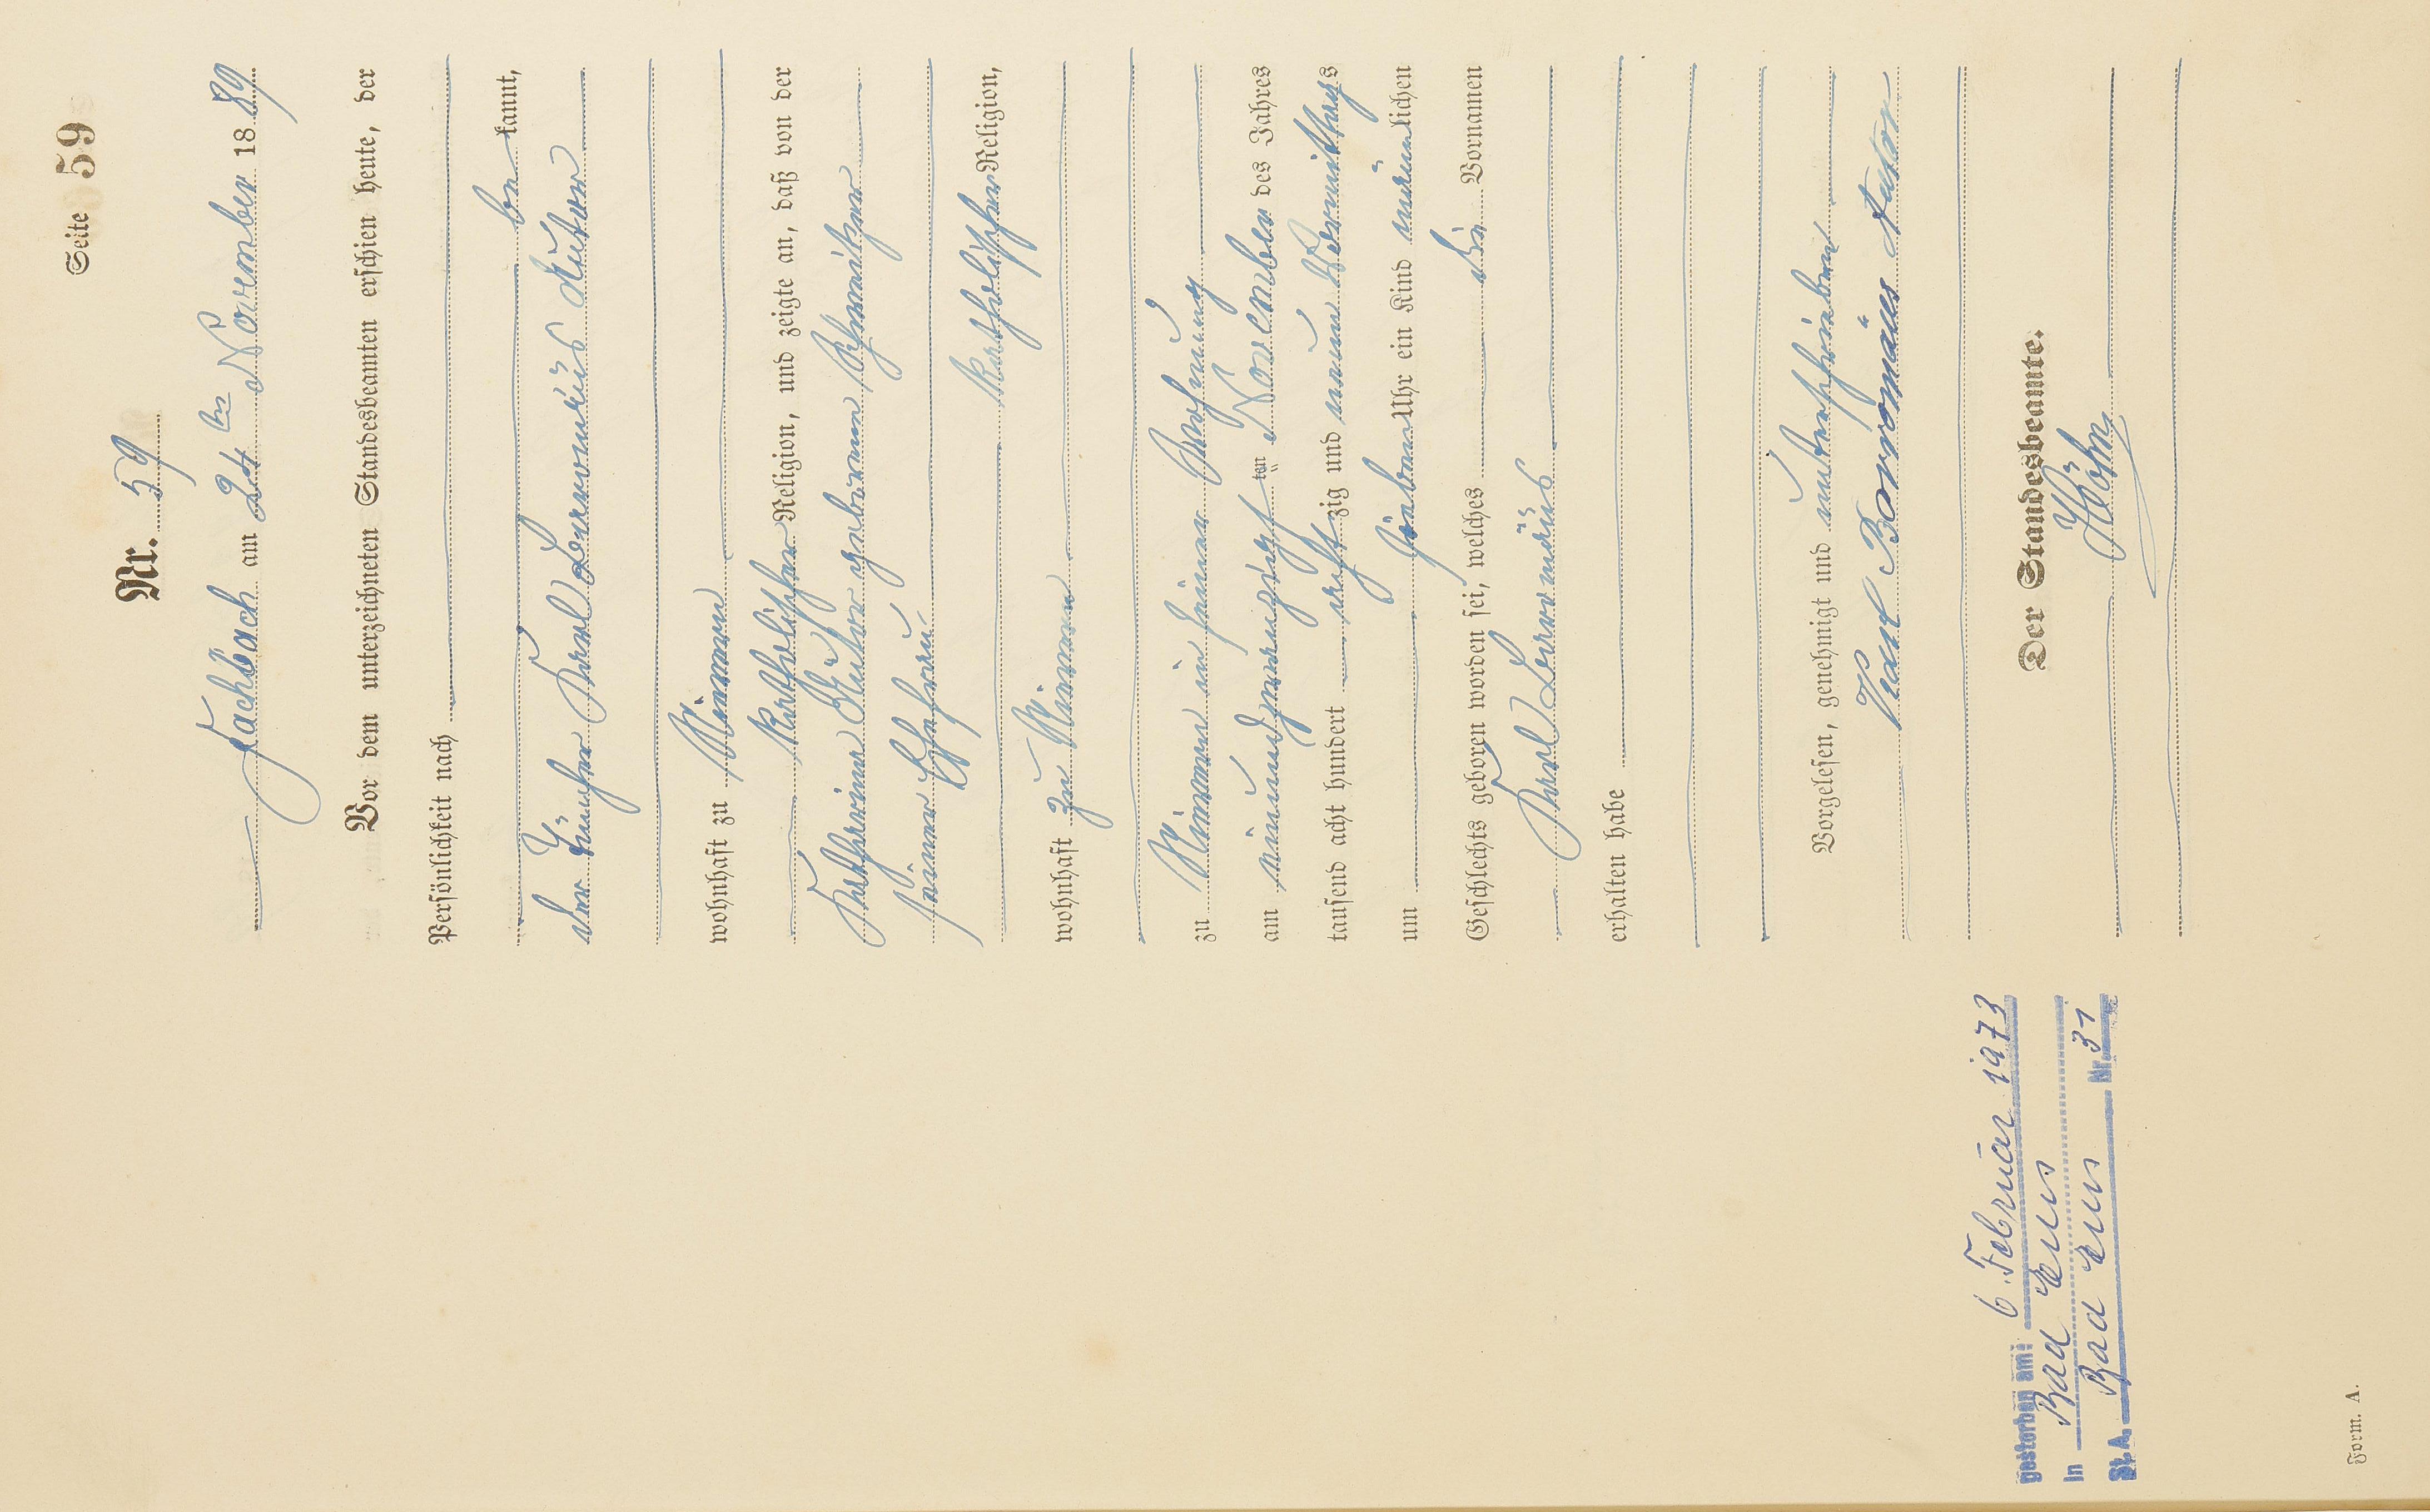 Seite 59
Nr. 59
Fachbach am 24ten November 1889
Vor dem unterzeichneten Standesbeamten erschien heute, der
Persönlichkeit nach
be kannt,
der Karl Borromäus
wohnhaft zu Nievern
katholischer Religion, und zeigte an, daß von der
Katharina geborenen
seiner Ehefrau
katholischer Religion,
wohnhaft zu Nievern
zu Nievern in seiner Wohnung
am einundzwanzigsten November des Jahres
tausend acht hundert acht zig und neun Vormittags
um sieben Uhr ein Kind männlichen
Geschlechts geboren worden sei, welches die Vornamen
Karl Borromäus
erhalten habe
Vorgelesen, genehmigt und unterschrieben
Karl Borromäus
Der Standesbeamte.
gestorben am: 6. Februar 1973
in Bad Ems
St.A. Bad Ems Nr. 31
Form. A.